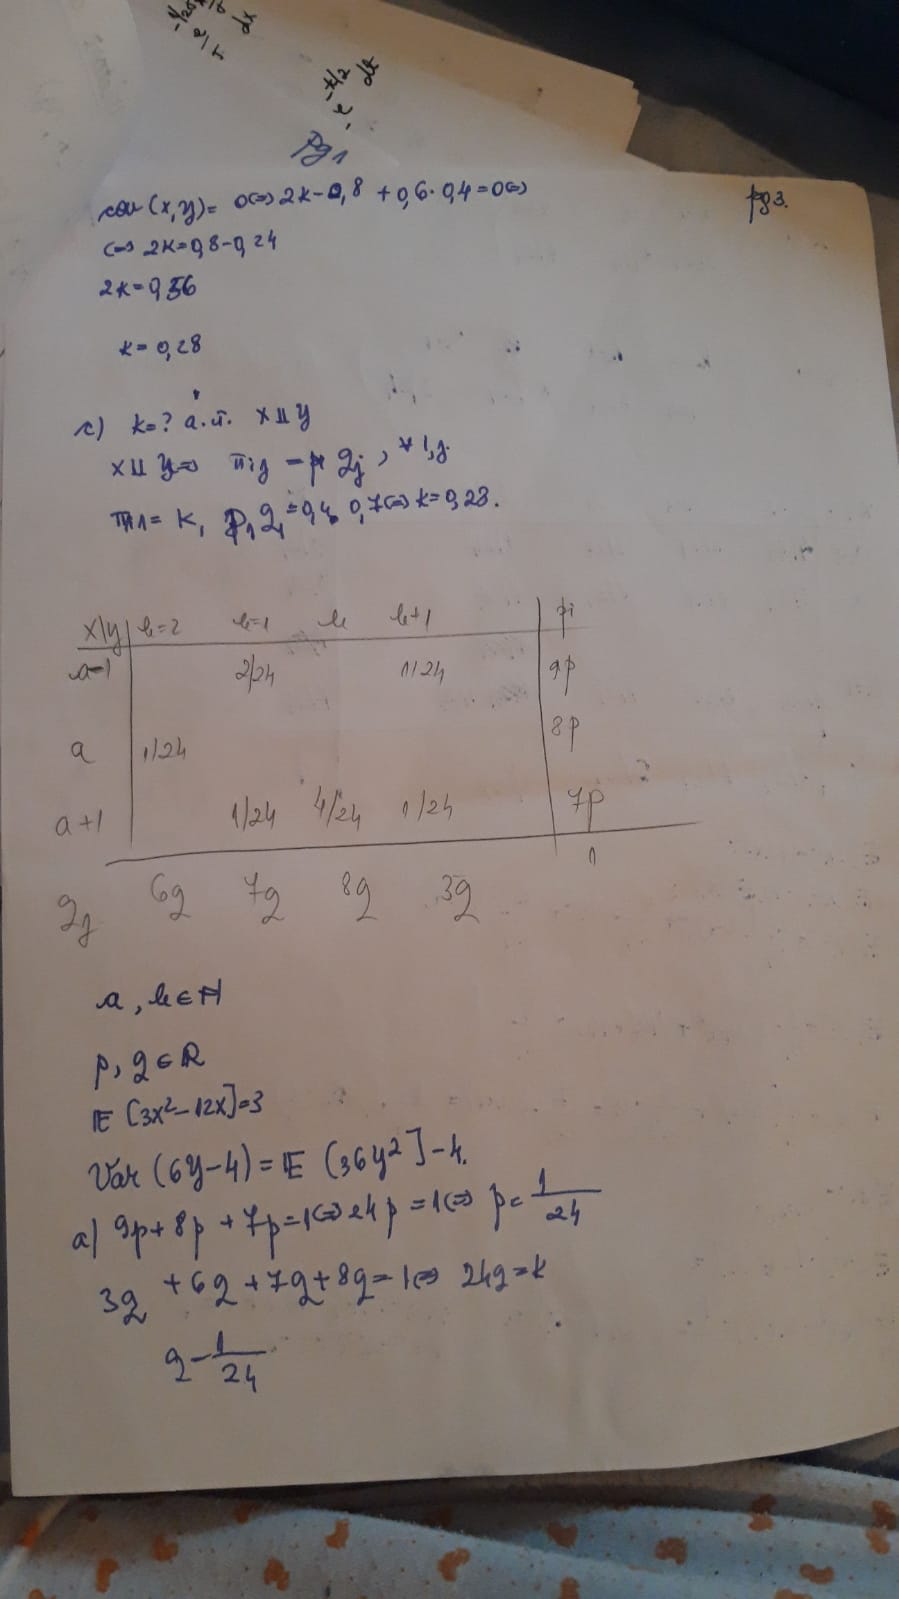 Pg 1
pg 3.
cov (x,y)= 0⇔ 2k-0,8 + 0,6·0,4=0⇔
⇔ 2k=0,8-0,24
2k=0,56
k= 0,28
c) k=? a.î. x ⫫ y
x ⫫ y⇔ πij = pi qj, ∀ i,j
π11= k, p1 q1=0,4·0,7⇔ k=0,28.
x\y b=2 b=1 b b+1 pi
a-1 2/24 1/24 9p
8p
a 1/24
a+1 1/24 4/24 1/24 7p
1
qj 6q 7q 8q 3q
a, b∈ℕ
p, q ∈ ℝ
𝔼 [3x²-12x]=3
Var (6y-4)= 𝔼 [36y²]-4.
a) 9p+8p+7p=1⇔ 24p=1⇔ p= 1/24
3q+6q+7q+8q=1⇔ 24q=k
q=1/24